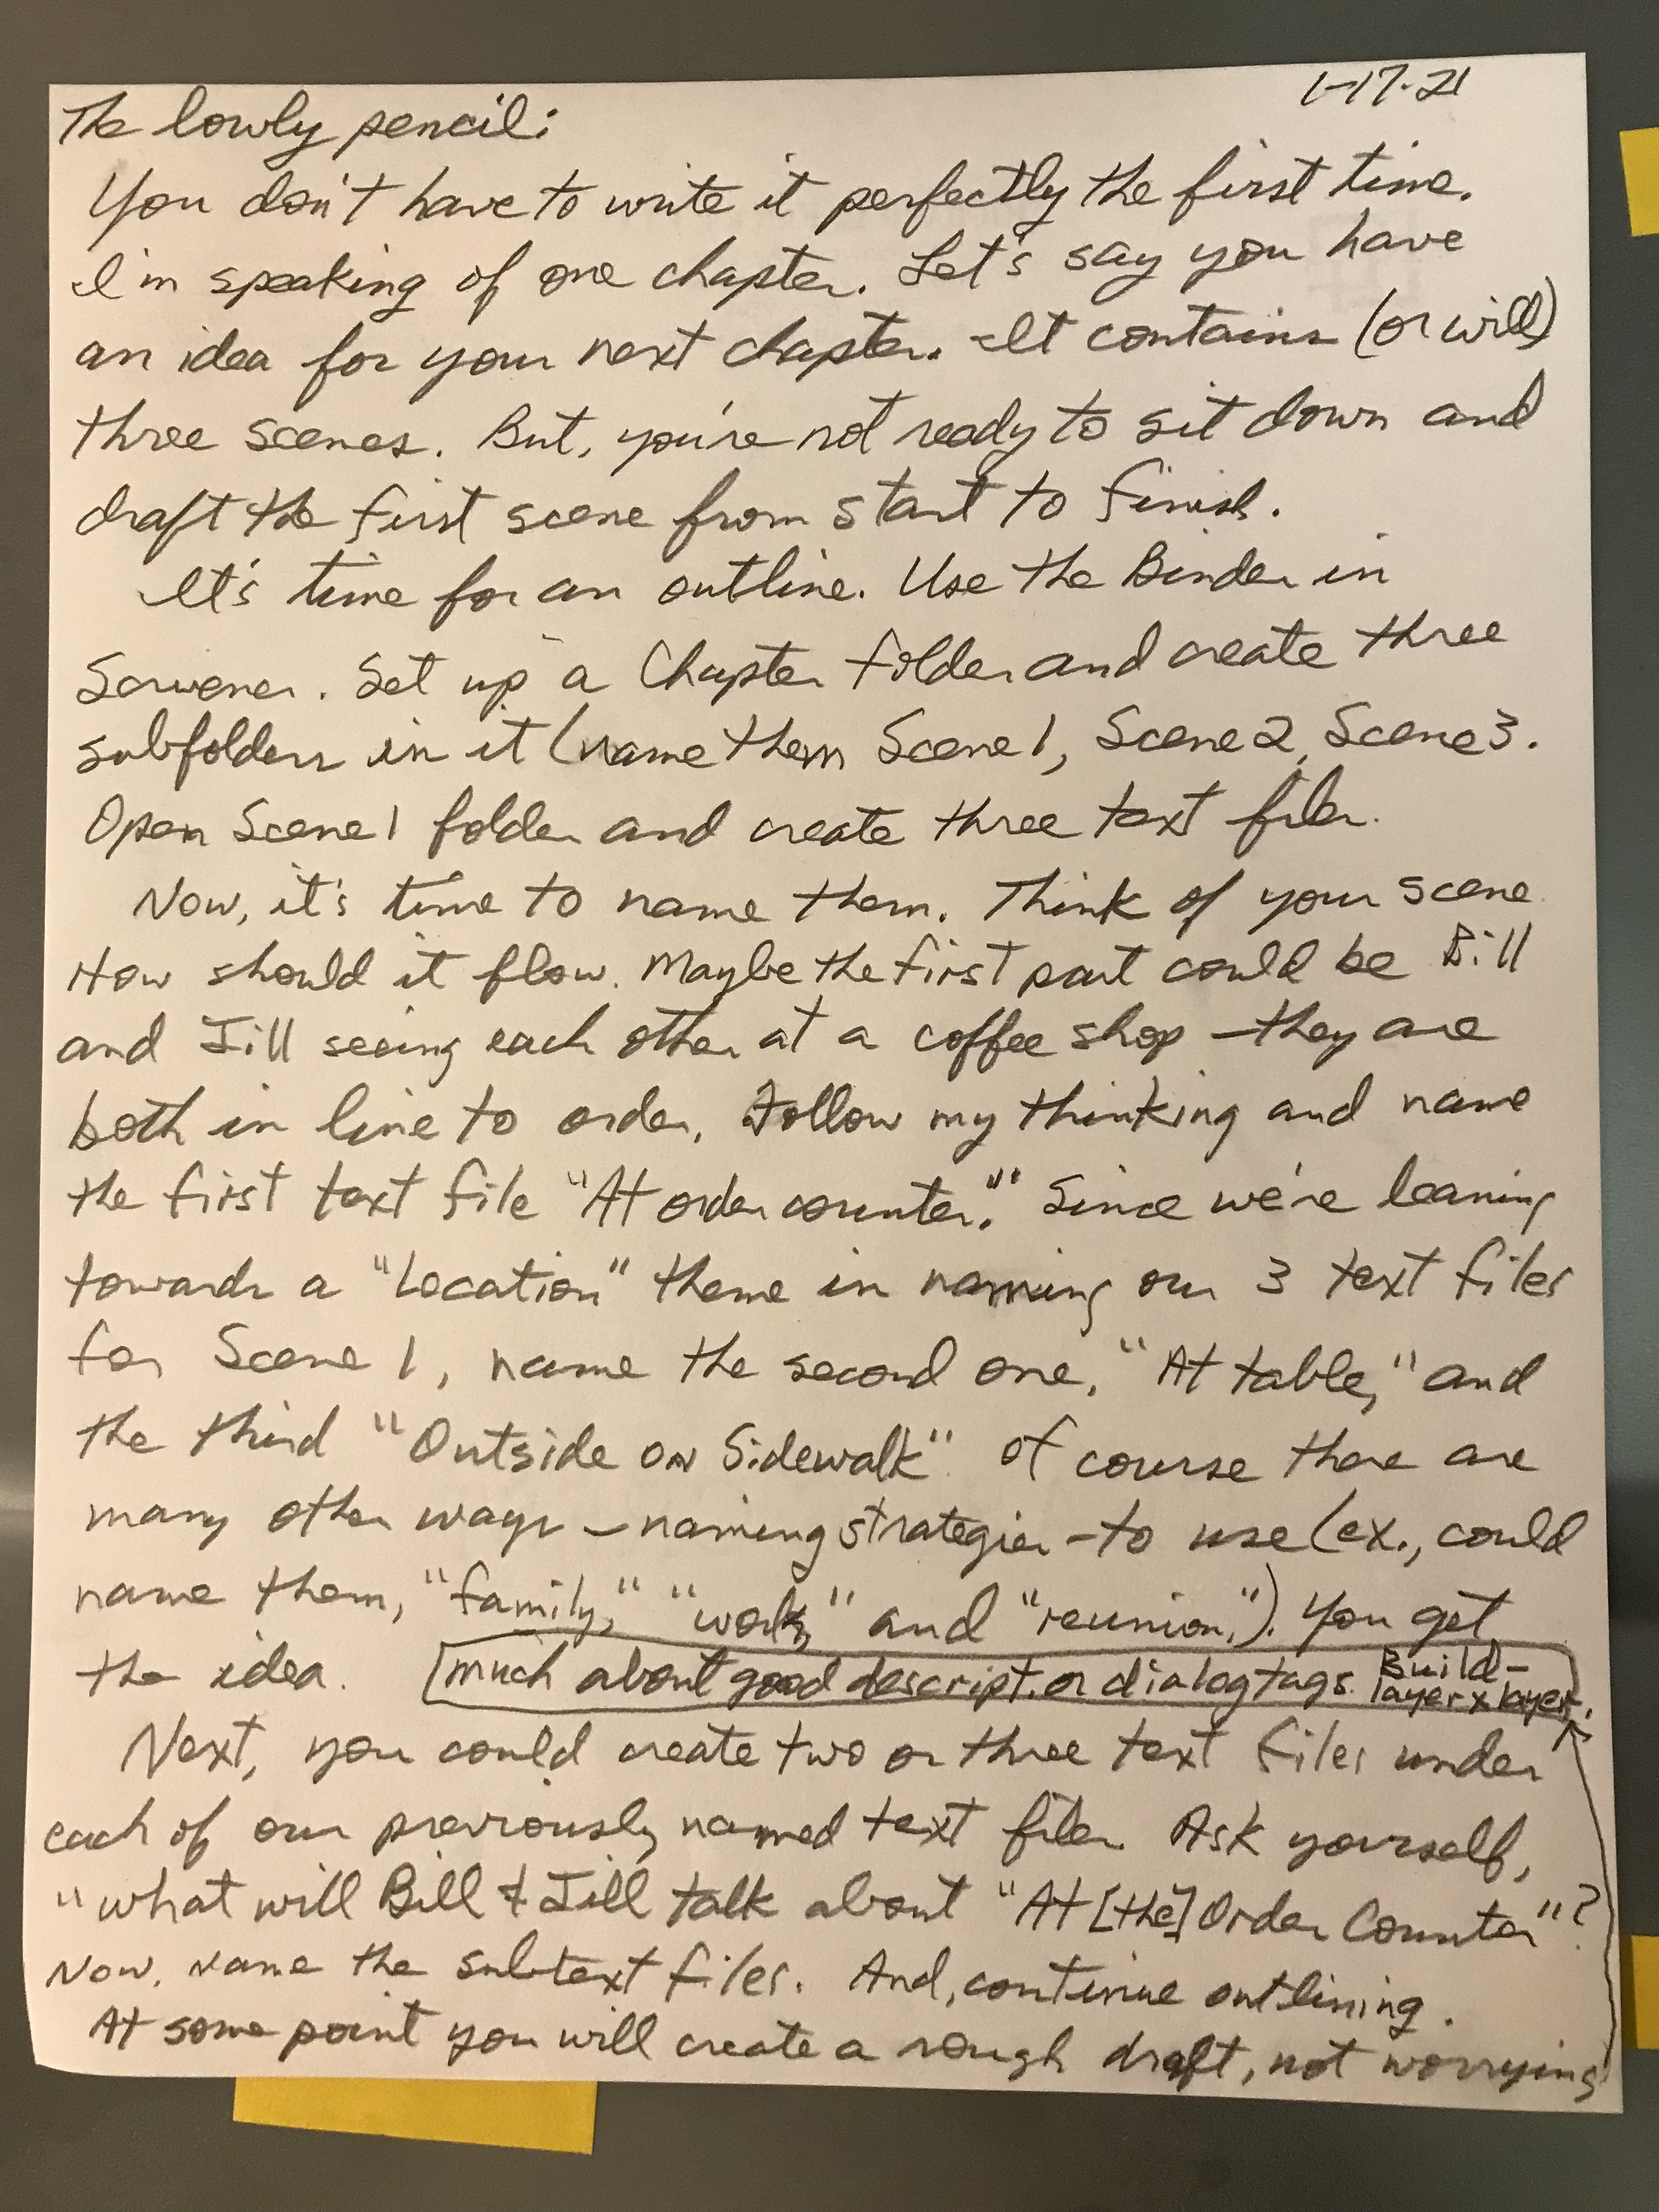 1-17-21
The lowly pencil:
You don't have to write it perfectly the first time.
I'm speaking of one chapter. Let's say you have
an idea for your next chapter. It contains (or will)
three scenes. But, you're not ready to sit down and
draft the first scene from start to finish.
It's time for an outline. Use the Binder in
Scrivener. Set up a Chapter folder and create three
subfolders in it (name them Scene 1, Scene 2, Scene 3.
Open Scene 1 folder and create three text files.
Now, it's time to name them. Think of your scene.
How should it flow. Maybe the first part could be Bill
and Jill seeing each other at a coffee shop - they are
both in line to order. Follow my thinking and name
the first text file "At order counter." Since we're leaning
towards a "Location" theme in naming our 3 text files
for Scene 1, name the second one, "At table," and
the third "Outside on Sidewalk". Of course there are
many other ways - naming strategies - to use (ex., could
name them, "family," "work," and "reunion,"). You get
the idea.
Next, you could create two or three text files under
each of our previously named text files. Ask yourself,
"what will Bill & Jill talk about "At [the] Order Counter"?
Now, name the subtext files. And, continue outlining.
At some point you will create a rough draft, not worrying
much about good descript. or dialog tags. Build -
layer x layer.